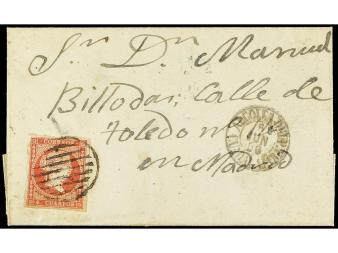 Sr. Dn. Manuel
Billodas, Calle de
Toledo nº
en Madrid
CORREOS
4 CUARTOS